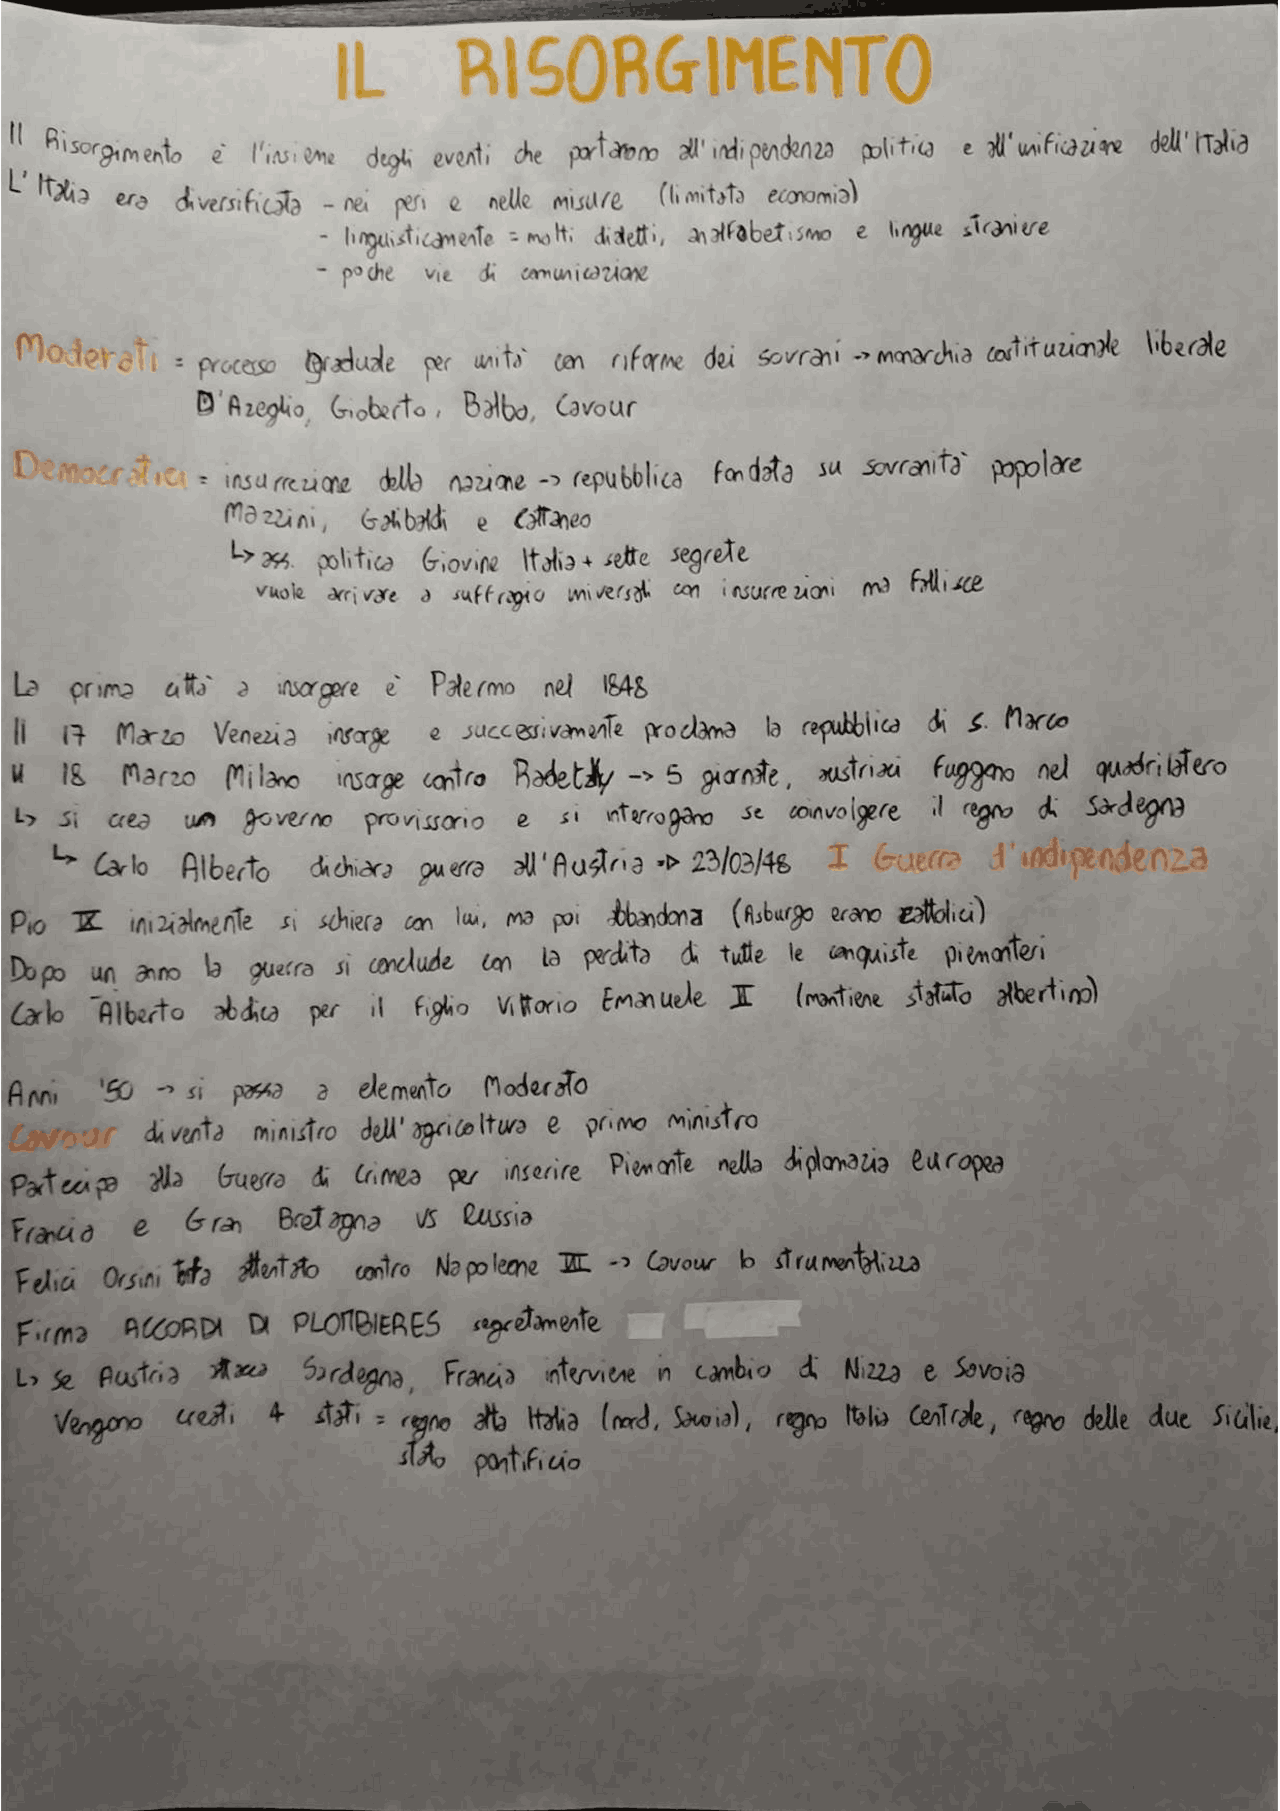 IL RISORGIMENTO
Il Risorgimento è l'insieme degli eventi che portarono all'indipendenza politica e all'unificazione dell'Italia
L'Italia era diversificata - nei pesi e nelle misure (limitata economia)
- linguisticamente = molti dialetti, analfabetismo e lingue straniere
- poche vie di comunicazione
Moderati = processo graduale per unità con riforme dei sovrani -> monarchia costituzionale liberale
D'Azeglio, Gioberto, Balbo, Cavour
Democratici = insurrezione della nazione -> repubblica fondata su sovranità popolare
Mazzini, Garibaldi e Cattaneo
↳ ass. politica Giovine Italia + sette segrete
vuole arrivare a suffragio universali con insurrezioni ma fallisce
La prima città a insorgere è Palermo nel 1848
Il 17 Marzo Venezia insorge e successivamente proclama la repubblica di S. Marco
Il 18 Marzo Milano insorge contro Radetzky -> 5 giornate, austriaci fuggono nel quadrilatero
↳ si crea un governo provissorio e si interrogano se coinvolgere il regno di Sardegna
↳ Carlo Alberto dichiara guerra all'Austria => 23/03/48 I Guerra d'indipendenza
Pio IX inizialmente si schiera con lui, ma poi abbandona (Asburgo erano cattolici)
Dopo un anno la guerra si conclude con la perdita di tutte le conquiste piemontesi
Carlo Alberto abdica per il figlio Vittorio Emanuele II (mantiene statuto albertino)
Anni '50 -> si passa a elemento Moderato
Cavour diventa ministro dell'agricoltura e primo ministro
Partecipa alla Guerra di Crimea per inserire Piemonte nella diplomazia europea
Francia e Gran Bretagna vs Russia
Felici Orsini attentato contro Napoleone III -> Cavour lo strumentalizza
Firma ACCORDI DI PLOMBIERES segretamente
↳ Se Austria attacca Sardegna, Francia interviene in cambio di Nizza e Savoia
Vengono creati 4 stati = regno alta Italia (nord, Savoia), regno Italia Centrale, regno delle due Sicilie,
stato pontificio